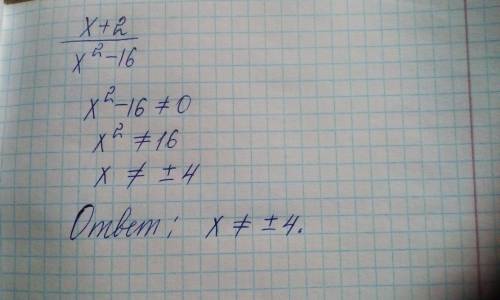 x+2
x²-16
x²-16≠0
x²≠16
x ≠ ±4
Ответ: x ≠ ±4.